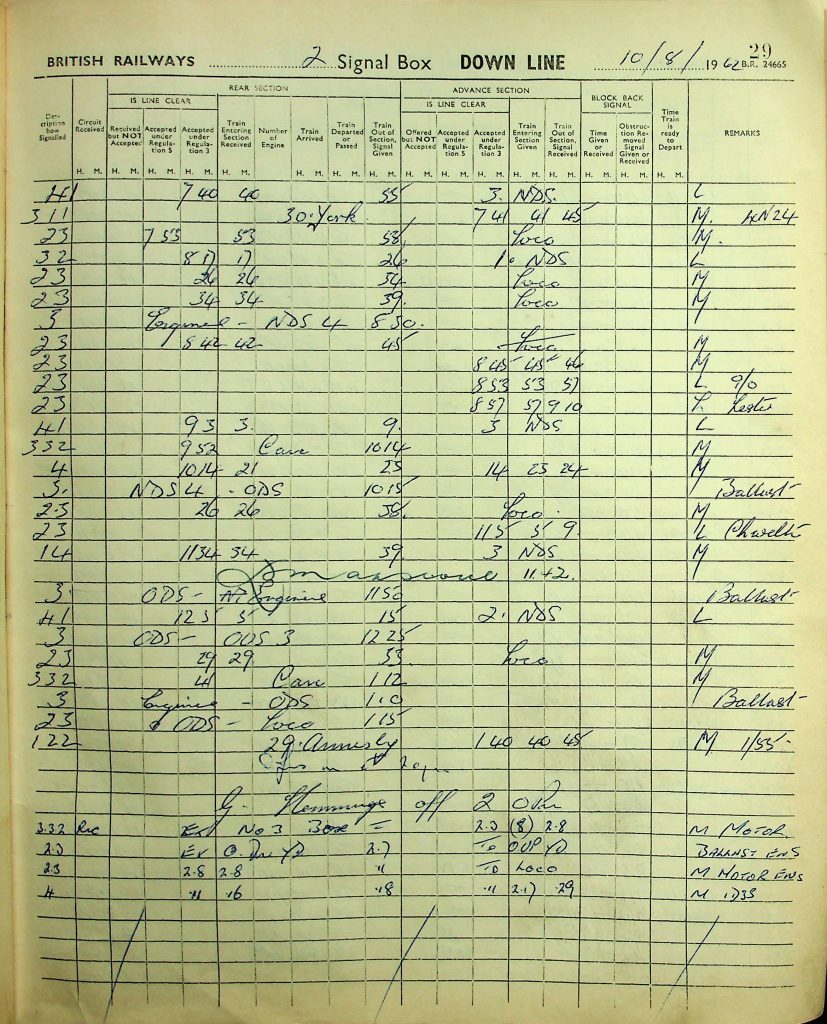 29
BRITISH RAILWAYS 2 Signal Box DOWN LINE 10/8/1962 B.R. 24665
REAR SECTION ADVANCE SECTION
IS LINE CLEAR IS LINE CLEAR BLOCK BACK SIGNAL
Description how Signalled Circuit Received Received but NOT Accepted Accepted under Regulation 5 Accepted under Regulation 3 Train Entering Section Received Number of Engine Train Arrived Train Departed or Passed Train Out of Section, Signal Given Offered but NOT Accepted Accepted under Regulation 5 Accepted under Regulation 3 Train Entering Section Given Train Out of Section, Signal Received Time Given or Received Obstruction Removed Signal Given or Received Time Train is ready to Depart REMARKS
H. M. H. M. H. M. H. M. H. M. H. M. H. M. H. M. H. M. H. M. H. M. H. M. H. M. H. M. H. M. H. M. H. M.
41 7 40 40 55 3. NDS. L
311 30. York 7 41 41 45 M. 4N24
23 7 53 53 58 Loco M.
32 8 17 17 26 1. NDS L
23 26 26 34 Loco M
23 34 34 39. Loco M
3 Engine - NDS 4 8 30.
23 8 42 42 45 Loco M
23 8 45 45 46 M
23 8 53 53 57 L 9/0
23 8 57 57 9 10 L Lester
41 9 3 3. 9. 3 NDS L
332 9 52 Carr 10 14 M
4 10 14 21 23 14 23 24 M
3. NDS 4 - ODS 10 15 Ballast
23 26 26 38. Loco. M
23 11 5 5 9. L
14 11 34 34 39 3 NDS M
11 42.
3. ODS - Engine 11 50 Ballast
41 12 5 5 15 2. NDS L
3 ODS - ODS 3 12 25
23 29 29 33 Loco M
332 41 Carr 1 12 M
3 Engine - ODS 1 10 Ballast
23 ODS - Loco 1 15
122 29. Annesly 1 40 40 45 M 1/55
G. Hemminge off 2 0 Pm
3.32 Rec Ex No 3 Box = 2.3 (8) 2.8 M MOTOR
2.3 Ex 2.7 To YD BALLAST ENG
23 2.8 2.8 " TO LOCO M MOTOR ENG
4 .11 .16 .18 .11 2.17 .29 M 1735